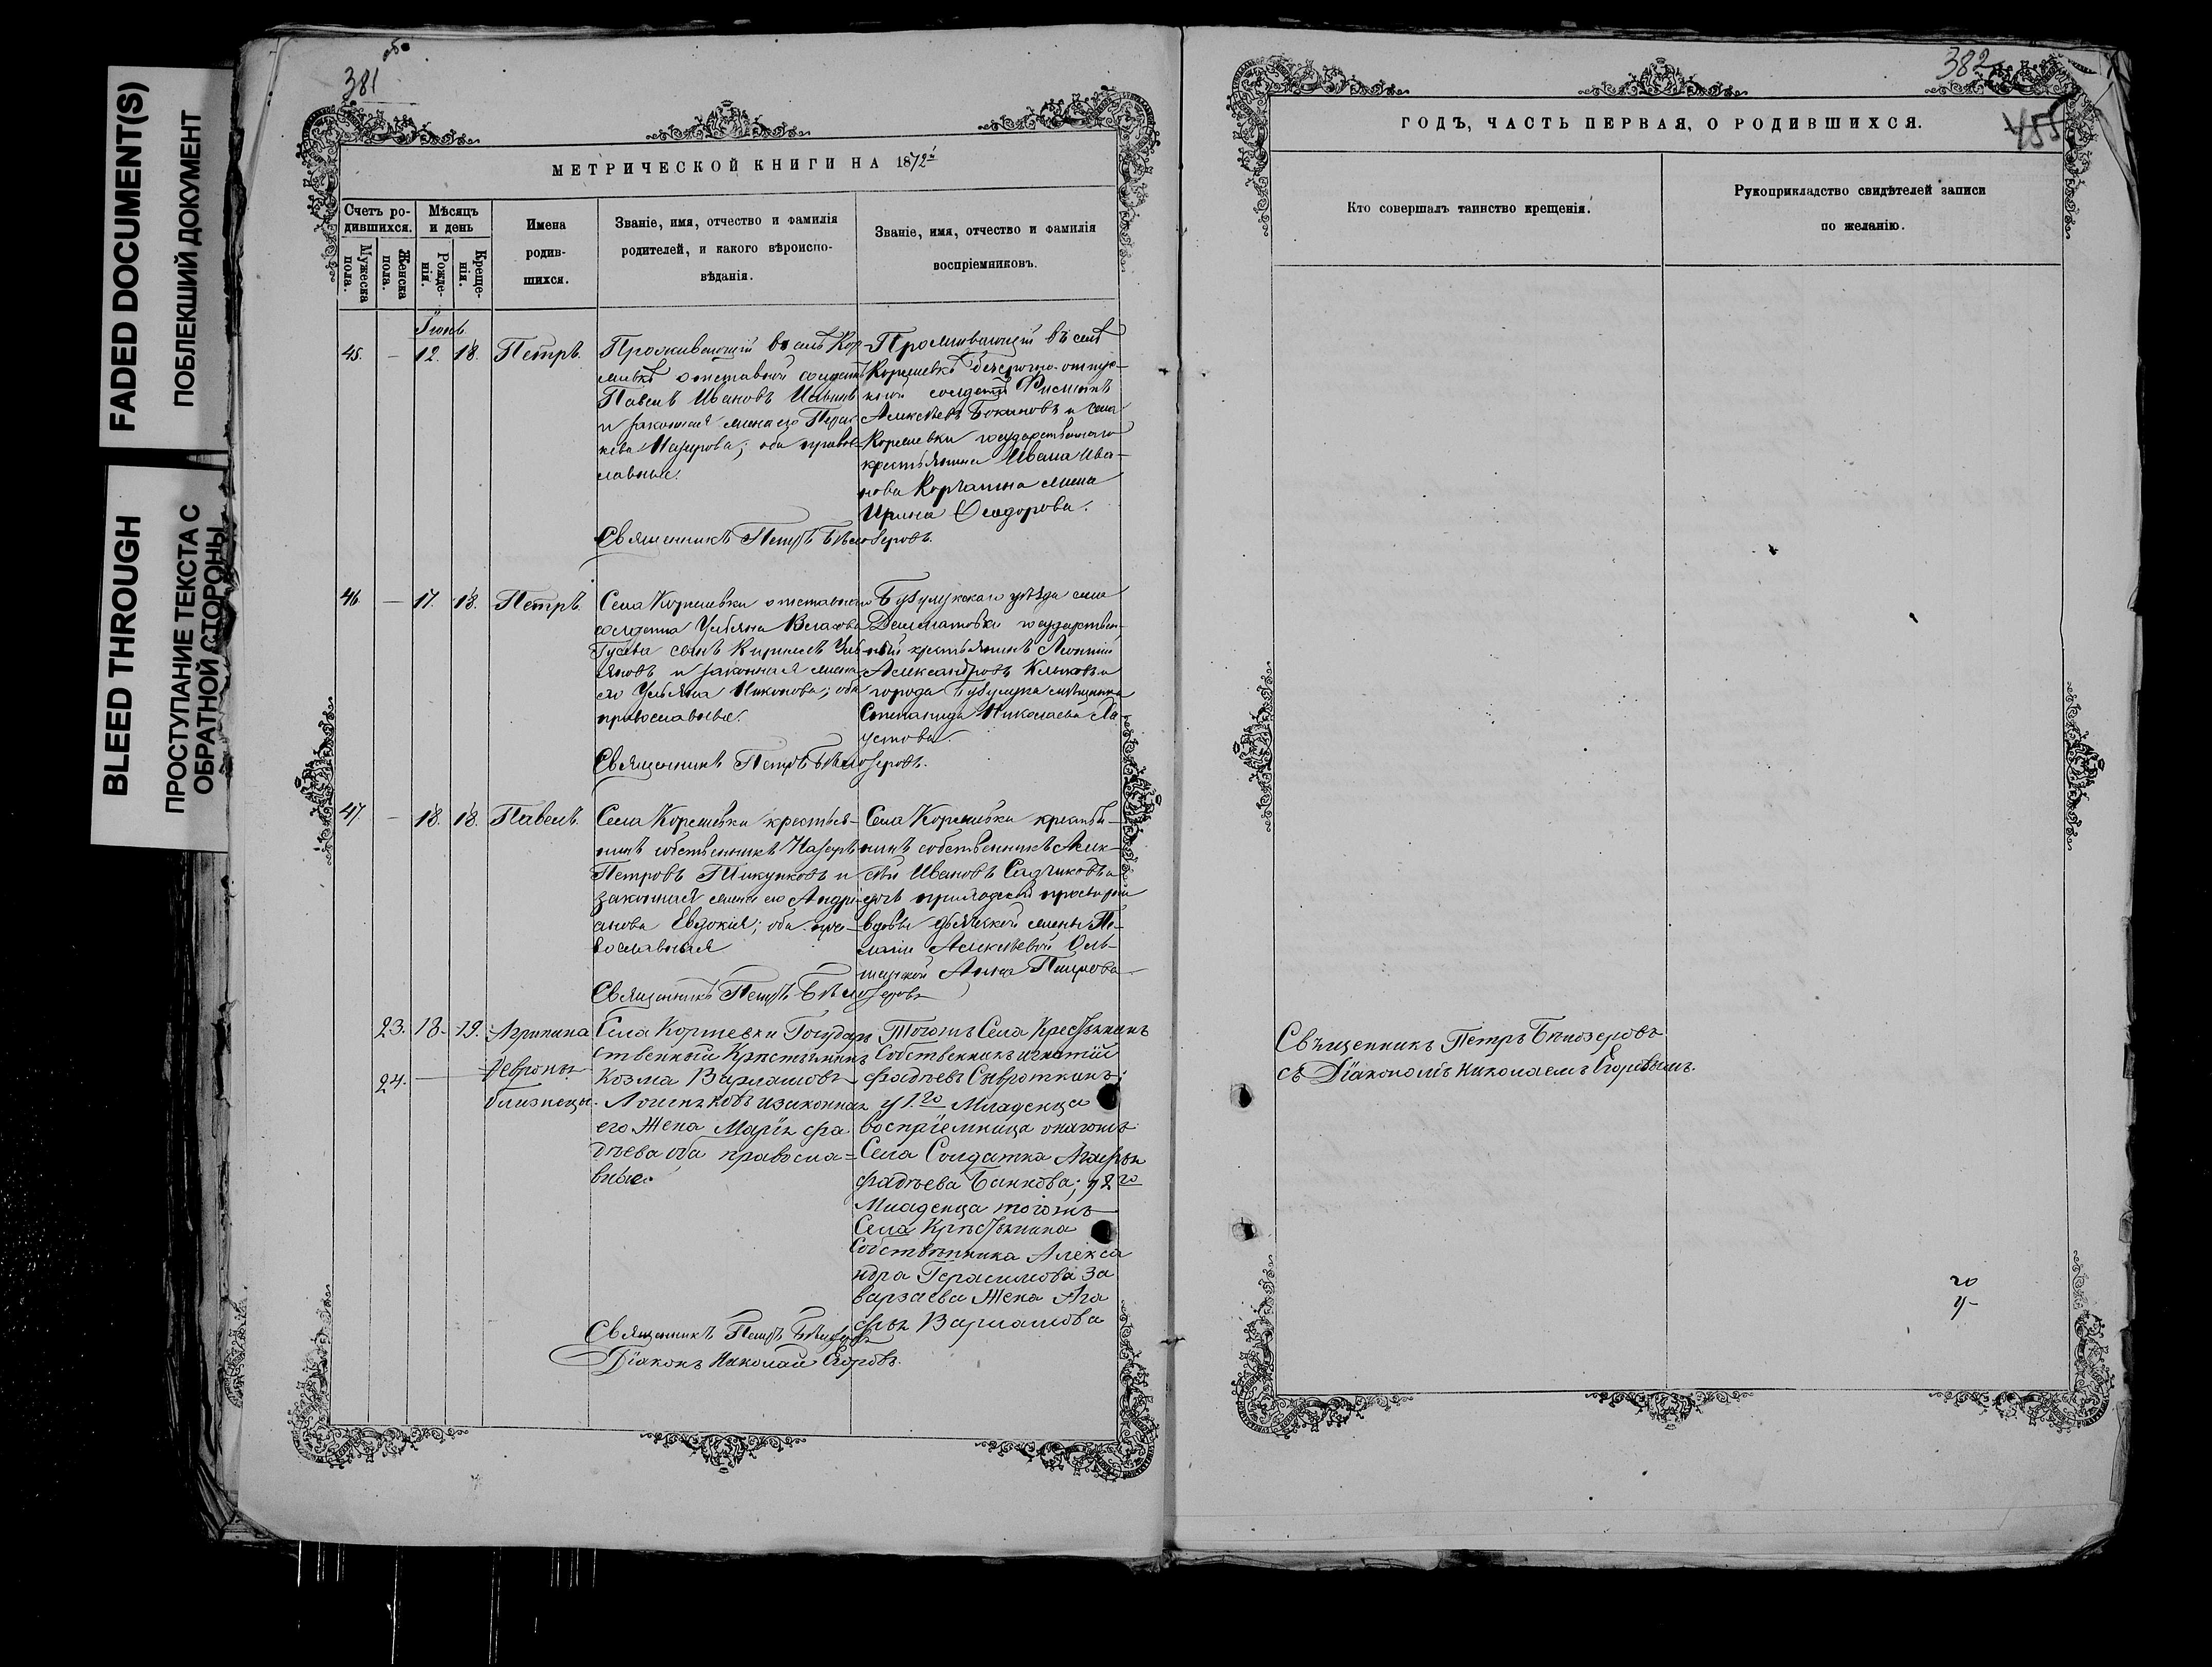 FADED DOCUMENT(S)
ПОБЛЕКШИЙ ДОКУМЕНТ
BLEED THROUGH
ПРОСТУПАНИЕ ТЕКСТА С
ОБРАТНОЙ СТОРОНЫ
381
об.
МЕТРИЧЕСКОЙ КНИГИ НА 1872й
Счетъ ро-
дившихся.
Мужеска
пола.
Женска
пола.
Мѣсяцъ
и день
Рожде-
нія.
Креще-
нія.
Имена
родив-
шихся.
Званіе, имя, отчество и фамилія
родителей, и какого вѣроиспо-
вѣданія.
Званіе, имя, отчество и фамилія
воспріемниковъ.
Іюнь.
45. — 12. 18. Петръ.
Проживающій въ селѣ Кор-
мевкѣ отставной солдатъ
Павелъ Ивановъ
и законная жена его
Назарова; оба право-
славные.
Проживающій въ селѣ
безсрочно-отпус-
кной солдатъ Филипъ
Алексѣевъ и села
государственнаго
крестьянина Ивана Ива-
нова Корчагина жена
Ирина Ѳеодорова.
Священникъ Петръ Бѣлозеровъ.
46. — 17. 18. Петръ.
Села отставнаго
солдата Ульяна Власова
Гусева сынъ Кириллъ Уль-
яновъ и законная жена
его Ульяна Никонова; оба
православные.
Бузулукскаго уѣзда села
государствен-
ный крестьянинъ Леонтій
Александровъ и
города Бузулука мѣщанка
Степанида Николаева Ха-
устова.
Священникъ Петръ Бѣлозеровъ.
47. — 18. 18. Павелъ.
Села крестья-
нинъ собственникъ Назаръ
Петровъ и
законная жена его Андри-
анова Евдокія; оба пра-
вославныя
Села крестья-
нинъ собственникъ Алек-
сѣй Ивановъ Садчиковъ и
дочь
вдовы дьяческой жены Пе-
лагіи Алексѣевой Оль-
шанской Анна Петрова
Священникъ Петръ Бѣлозеровъ
23. 18. 19. Агрипина
24. — Февронья
близнецы.
Села Государ
ственный Крнстьянинъ
Козма Варламовъ
изаконная
его Жена Марія Фа
дѣева оба правосла=
вные.
Тогожъ Села Крестьянинъ
Собственникъ игнатій
Фадѣевъ Сыроткинъ;
у 1.го Младенца
воспріемница
Села Солдатка
Фадѣева Банкова; у 2го
Младенца тогожъ
Села Крестьянина
Собственника Алекса
ндра Герасимова За
варзаева Жена Ага
фья Варламова
Священникъ Петръ Бѣлозеровъ
Діаконъ Николай Егоровъ.
382
455
ГОДЪ, ЧАСТЬ ПЕРВАЯ, О РОДИВШИХСЯ.
Кто совершалъ таинство крещенія.
Рукоприкладство свидѣтелей записи
по желанію.
Свѣщенникъ Петръ Бѣлозеровъ
съ Діакономъ Николаемъ Егоровымъ.